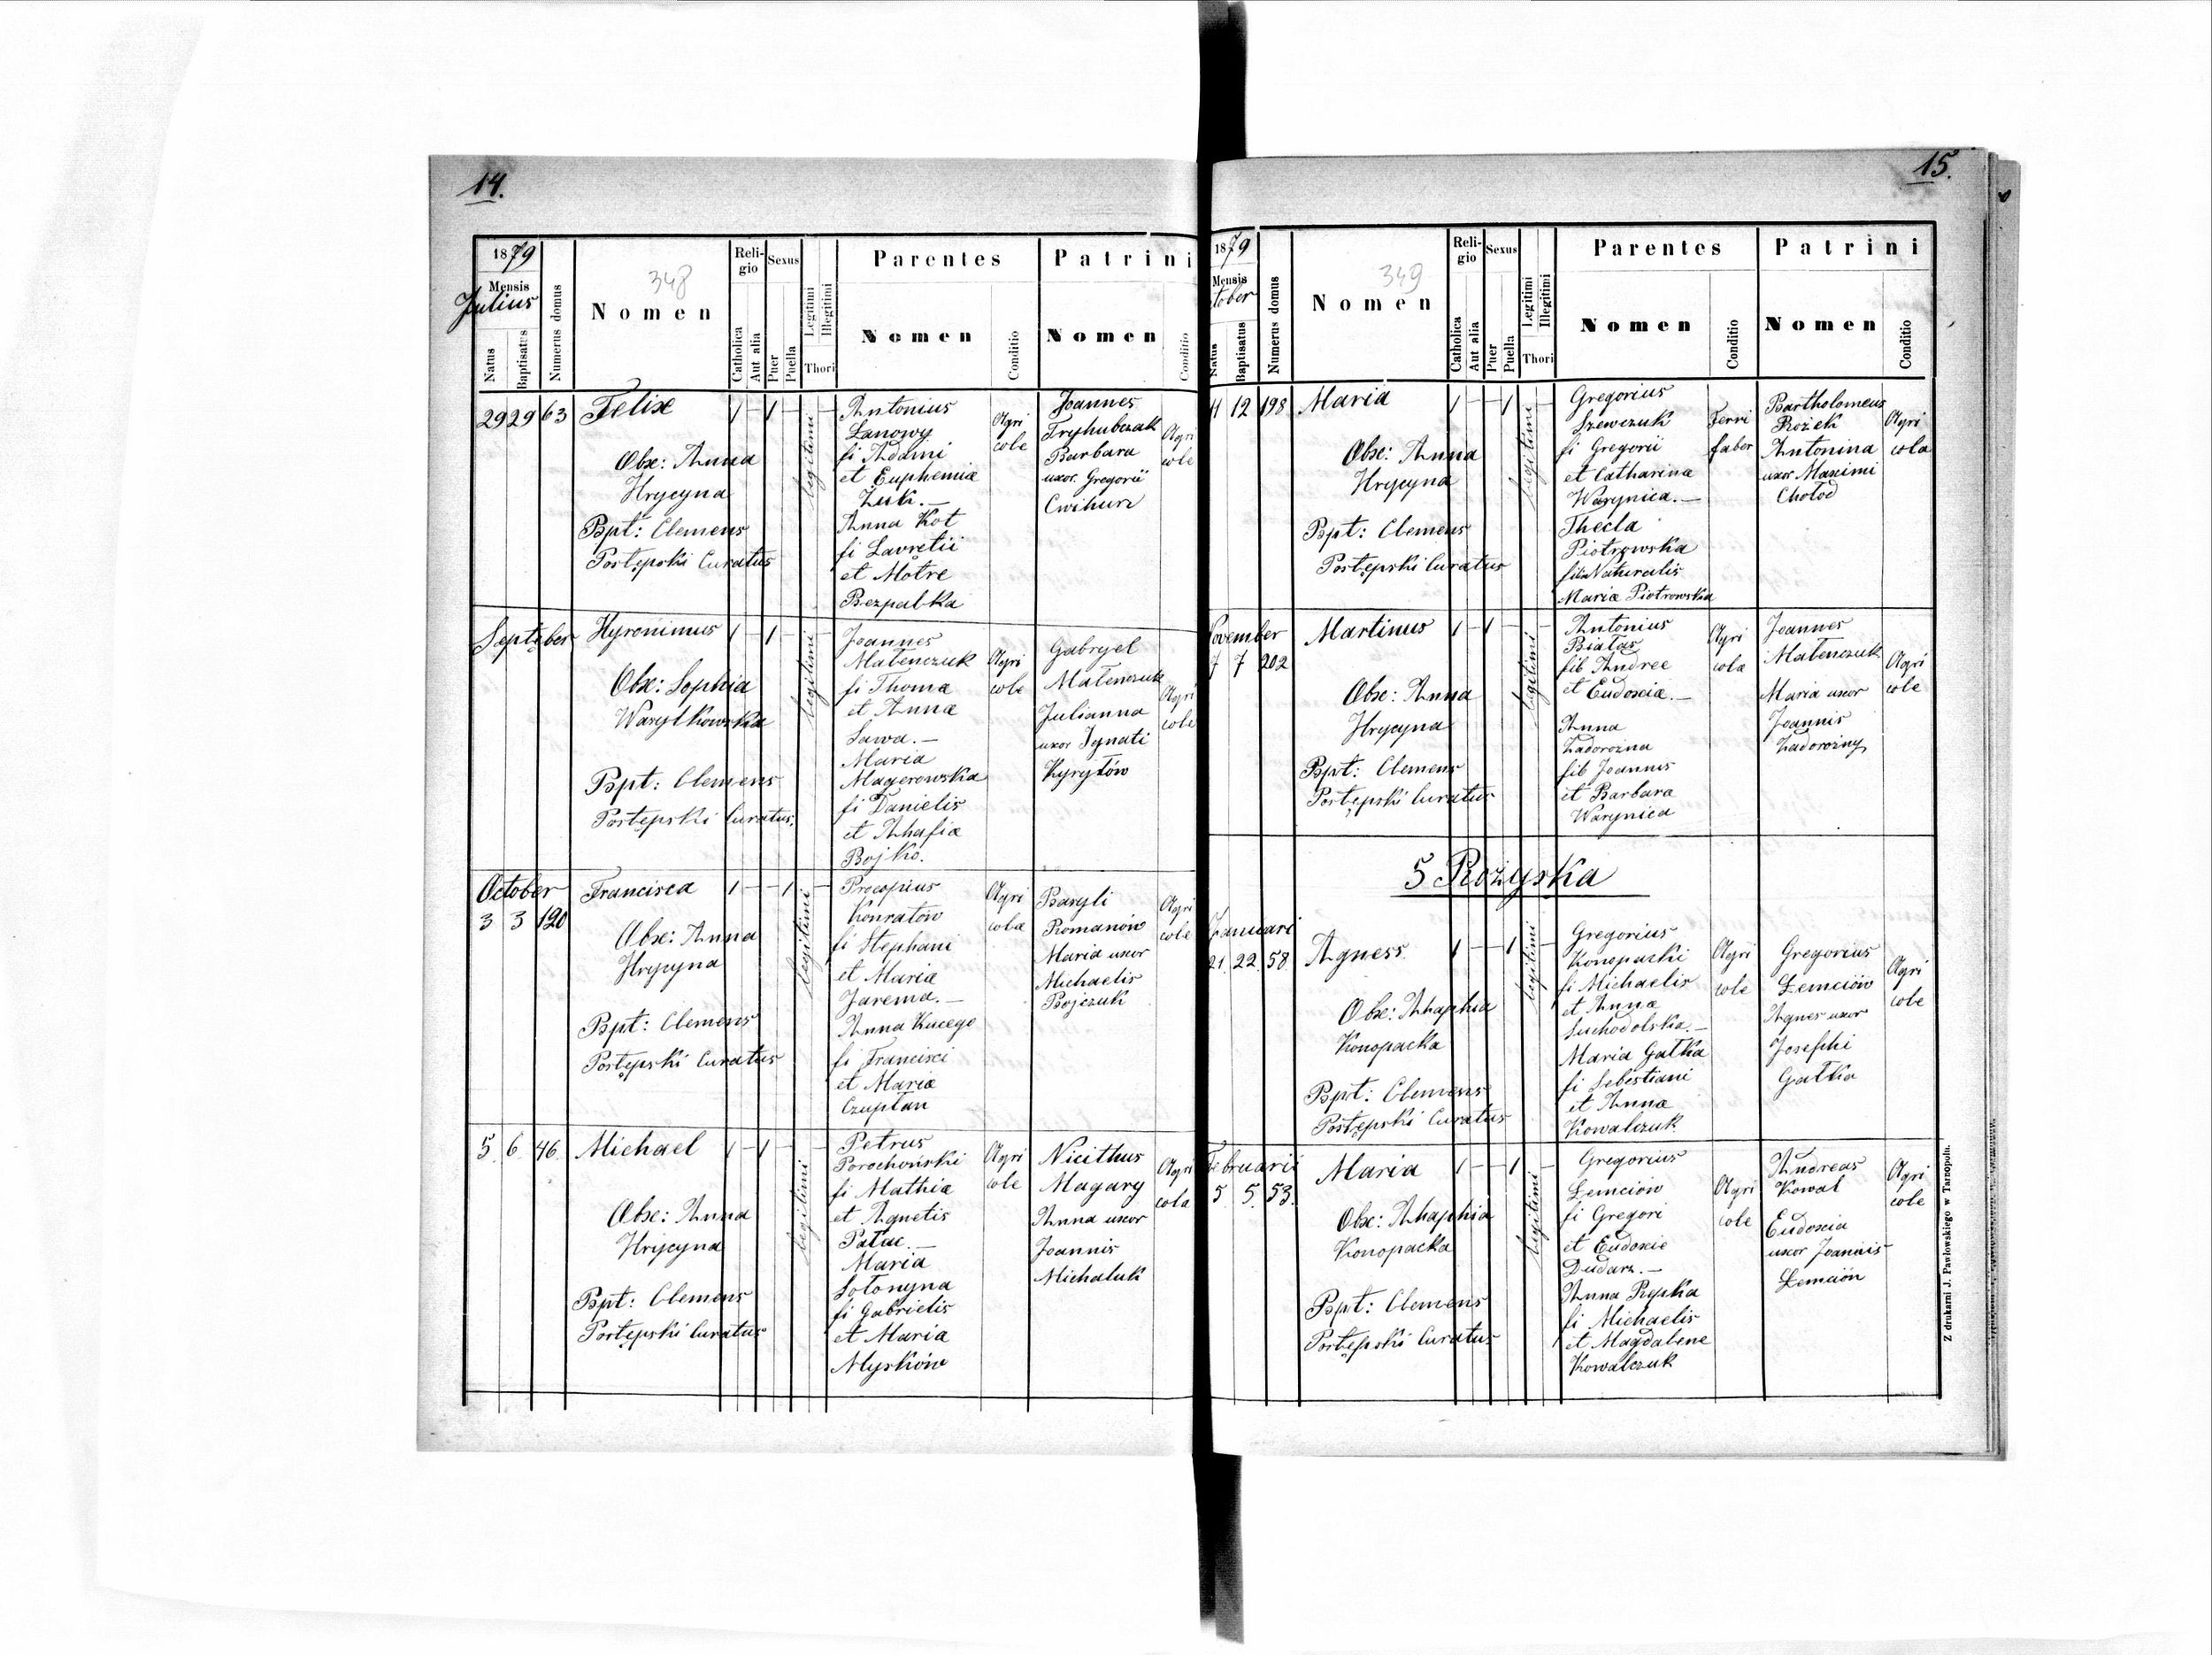 14.
1879
Mensis
Julius
Natus
Baptisatus
Numerus domus
348
Nomen
Religio
Catholica
Aut alia
Sexus
Puer
Puella
Legitimi
Illegitimi
Thori
Parentes
Nomen
Conditio
Patrini
Nomen
Conditio
29 29 63 Felix
Obx: Anna
Hrycyna
Bpt: Clemens
Postępski Curatus
legitimi
Antonius
Lanowy
fi Adami
et Euphemia
Żuk.—
Anna Kot
fi Lavretii
et Motre
Bezpalka
Agri
cole
Joannes
Tryhubczak
Barbara
uxor. Gregorii
Cwihun
Agri
cole
September Hyronimus
Obx: Sophia
Wasylkowska
Bpt: Clemens
Postępski Curatus.
legitimi
Joannes
Matenczuk
fi Thoma
et Anna
Sawa.—
Maria
Magerowska
fi Danielis
et Ahafia
Bojko.
Agri
cole
Gabryel
Matenczuk
Julianna
uxor Ignati
Kyryłów
Agri
cole
October
3 3 120 Francisca
Obx: Anna
Hrycyna
Bpt: Clemens
Postępski Curatus
legitimi
Procopius
Konratów
fi Stephani
et Maria
Jarema.—
Anna Kucego
fi Francisci
et Maria
Czuplan
Agri
cola
Basyli
Romanów
Maria uxor
Michaelis
Bojczuk
Agri
cole
5 6 46. Michael
Obx: Anna
Hrycyna
Bpt: Clemens
Postępski Curatus
legitimi
Petrus
Porochoński
fi Mathia
et Agnetis
Pałac.—
Maria
Sołonyna
fi Gabrielis
et Maria
Myśków
Agri
cole
Nicithus
Magary
Anna uxor
Joannis
Michaluk
Agri
cola
15.
1879
Mensis
tober
Natus
Baptisatus
Numerus domus
349
Nomen
Religio
Catholica
Aut alia
Sexus
Puer
Puella
Legitimi
Illegitimi
Thori
Parentes
Nomen
Conditio
Patrini
Nomen
Conditio
11 12 198 Maria
Obx: Anna
Hrycyna
Bpt: Clemens
Postępski Curatus
legitimi
Gregorius
Szewczuk
fi Gregorii
et Catharina
Warynica.—
Thecla
Piotrowska
filia Naturalis
Maria Piotrowska
Ferri
faber
Bartholomeus
Rożek
Antonina
uxor Maximi
Chołod
Agri
cola
November
7 7 202
Martinus
Obx: Anna
Hrycyna
Bpt: Clemens
Postępski Curatus
legitimi
Antonius
Białas
fib Andree
et Eudoxia.—
Anna
Zadorożna
fib Joannis
et Barbara
Warynica
Agri
cola
Joannes
Matenczuk
Maria uxor
Joannis
Zadorożny
Agri
cole
5 Rożyska
Januari
21. 22. 58. Agness
Obx: Ahaphia
Konopacka
Bpt: Clemens
Postępski Curatus
legitimi
Gregorius
Konopacki
fi Michaelis
et Anna
Suchodolska.—
Maria Gałka
fi Sebestiani
et Anna
Kowalczuk
Agri
cole
Gregorius
Łemciów
Agnes uxor
Josephi
Gałka
Agri
cole
Februarii
5 5. 53. Maria
Obx: Ahaphia
Konopacka
Bpt: Clemens
Postępski Curatus
legitimi
Gregorius
Łemciów
fi Gregori
et Eudoxie
Dudarz.—
Anna Rypka
fi Michaelis
et Magdalene
Kowalczuk
Agri
cole
Andreas
Kowal
Eudoxia
uxor Joannis
Łemciów
Agri
cole
Z drukarni J. Pawłowskiego w Tarnopolu.